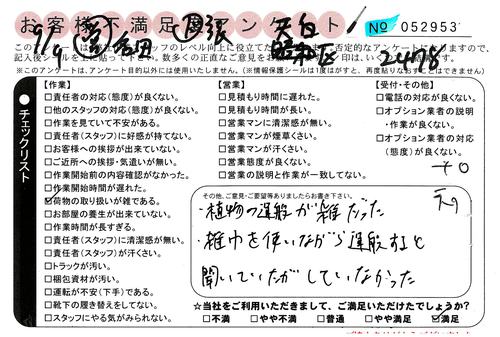 お客様不満足度アンケート
No 052953
9/9 吉田 天白
昭和区 24718
※このアンケートは、アンケート目的以外には使用いたしません。(※情報保護シールは1度はがすと、再度貼りなおすことはできません)
チェックリスト
【作業】
□責任者の対応(態度)が良くない。
□他のスタッフの対応(態度)が良くない。
□作業を見ていて不安がある。
□責任者(スタッフ)に好感が持てない。
□お客様への挨拶が出来ていない。
□ご近所への挨拶・気遣いが無い。
□作業開始前の内容確認がなかった。
□作業開始時間が遅れた。
☑荷物の取り扱いが雑である。
□お部屋の養生が出来ていない。
□作業時間が長すぎる。
□責任者(スタッフ)に清潔感が無い。
□責任者(スタッフ)が汗くさい。
□トラックが汚い。
□梱包資材が汚い。
□運転が不安(下手)である。
□靴下の履き替えをしてない。
□スタッフにやる気がみられない。
【営業】
□見積もり時間に遅れた。
□見積もり時間が長い。
□営業マンに清潔感が無い。
□営業マンが煙草くさい。
□営業マンが汗くさい。
□営業態度が良くない。
□営業の説明と作業が一致してない。
【受付・その他】
□電話の対応が良くない。
□オプション業者の説明
・作業が良くない。
□オプション業者の対応
(態度)が良くない。
その他、ご意見・ご要望等ありましたらお書き下さい。
・植物の運搬が雑だった
・雑巾を使いながら運搬すると
聞いていたがしていなかった
☆当社をご利用いただきまして、ご満足いただけたでしょうか?
□不満 □やや不満 □普通 □やや満足 ☑満足